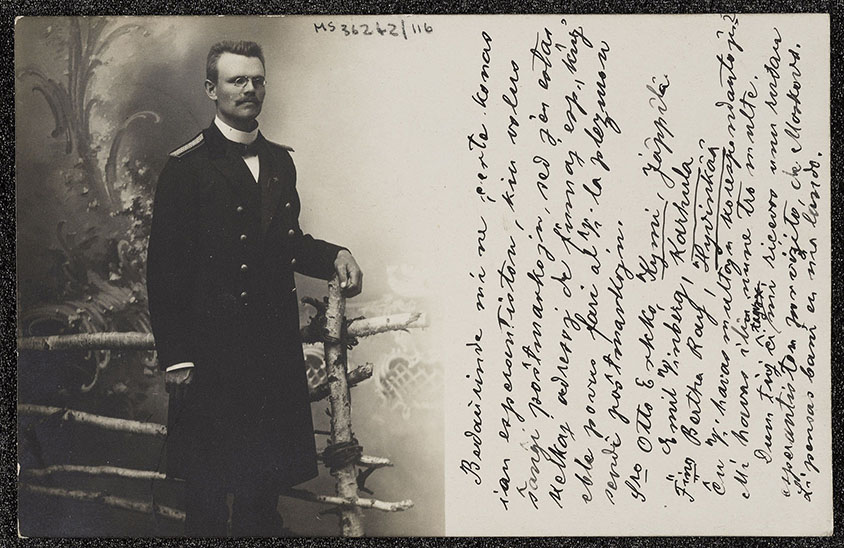 MS 36242/116
Bedaŭrinde mi ne certe konas
ian esperantiston, kiu volus
ŝanĝi poŝtmarkojn, sed jen estas
kelkaj adresoj de finnaj esp., kiuj
eble povus fari al Vi la plezuron
sendi poŝtmarkojn.
Sro Otto Erkka, Kymi, Jäppilä
Emil Vinberg, Karhula
Fino Bertha Rauf, Hyvinkää
Ĉu Vi havas multajn korespondantojn?
Mi havas ilin nune tro multe.
Dum tiuj tagoj mi ricevos unu rusan
esperantiston por viziti, de Moskovo.
Li pensas bani en nia lando.